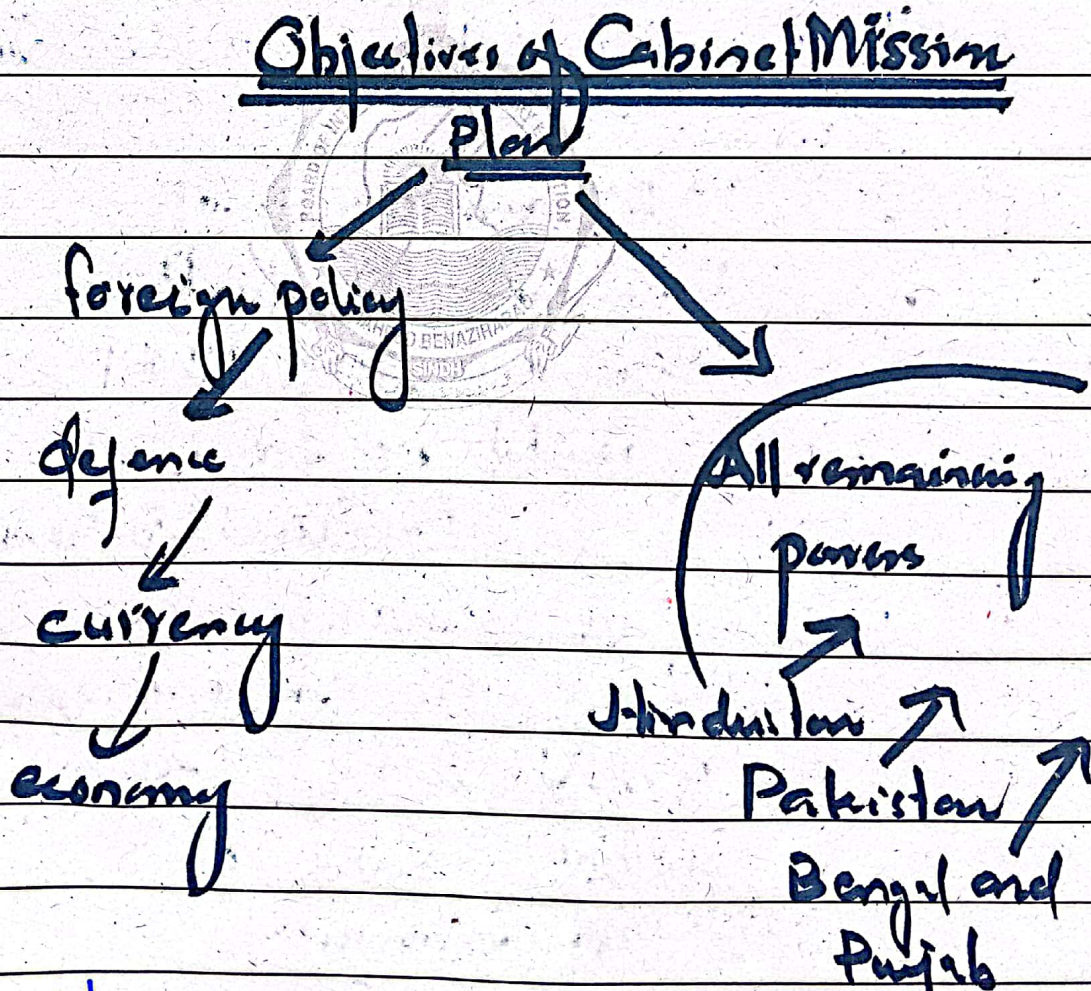 Objectives of Cabinet Mission
Plan
foreign policy
defence
currency
economy
All remaining
powers
Hindustan
Pakistan
Bengal and
Punjab
BENAZIRABAD
SINDH